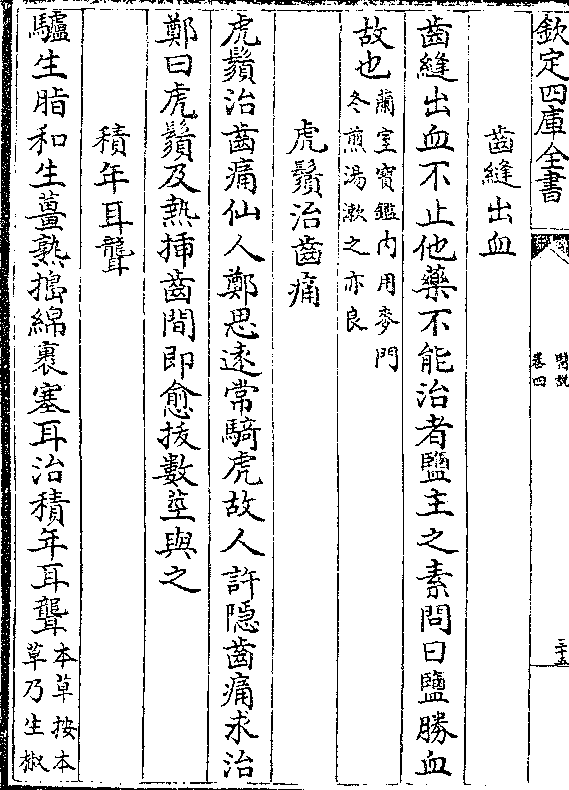 欽定四庫全書
醫說
卷四
三十五
齒縫出血
齒縫出血不止他藥不能治者鹽主之素問曰鹽勝血
故也蘭室寶鑑内用麥門
冬煎湯漱之亦良
虎鬚治齒痛
虎鬚治齒痛仙人鄭思逺常騎虎故人許隱齒痛求治
鄭曰虎鬚及熱揷齒間即愈拔數莖與之
積年耳聾
驢生脂和生薑熟搗綿裹塞耳治積年耳聾本草按本
草乃生椒